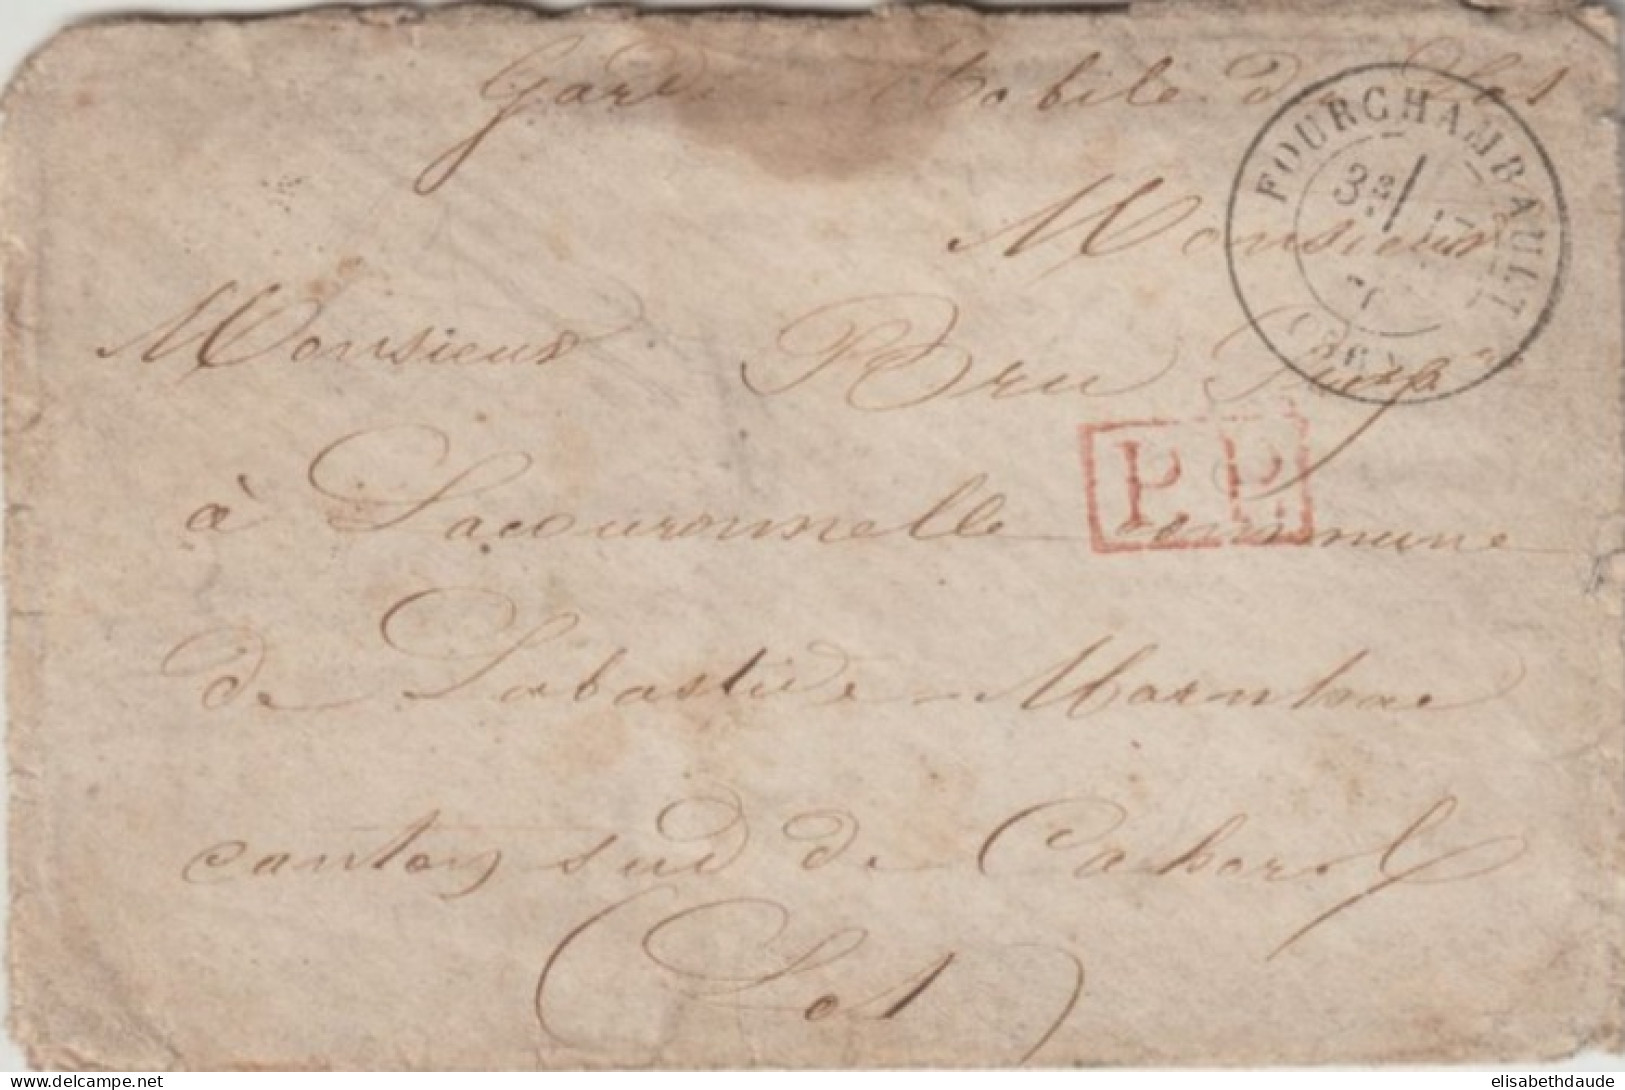 Garde Mobile du Lot
FOURCHAMBAULT
3E
17
Monsieur
Monsieur Bru
P.P.
à Lacouronnelle commune
de Labastide Marnhac
canton sud de Cahors
(Lot)
delcampe.net
elisabethdaude